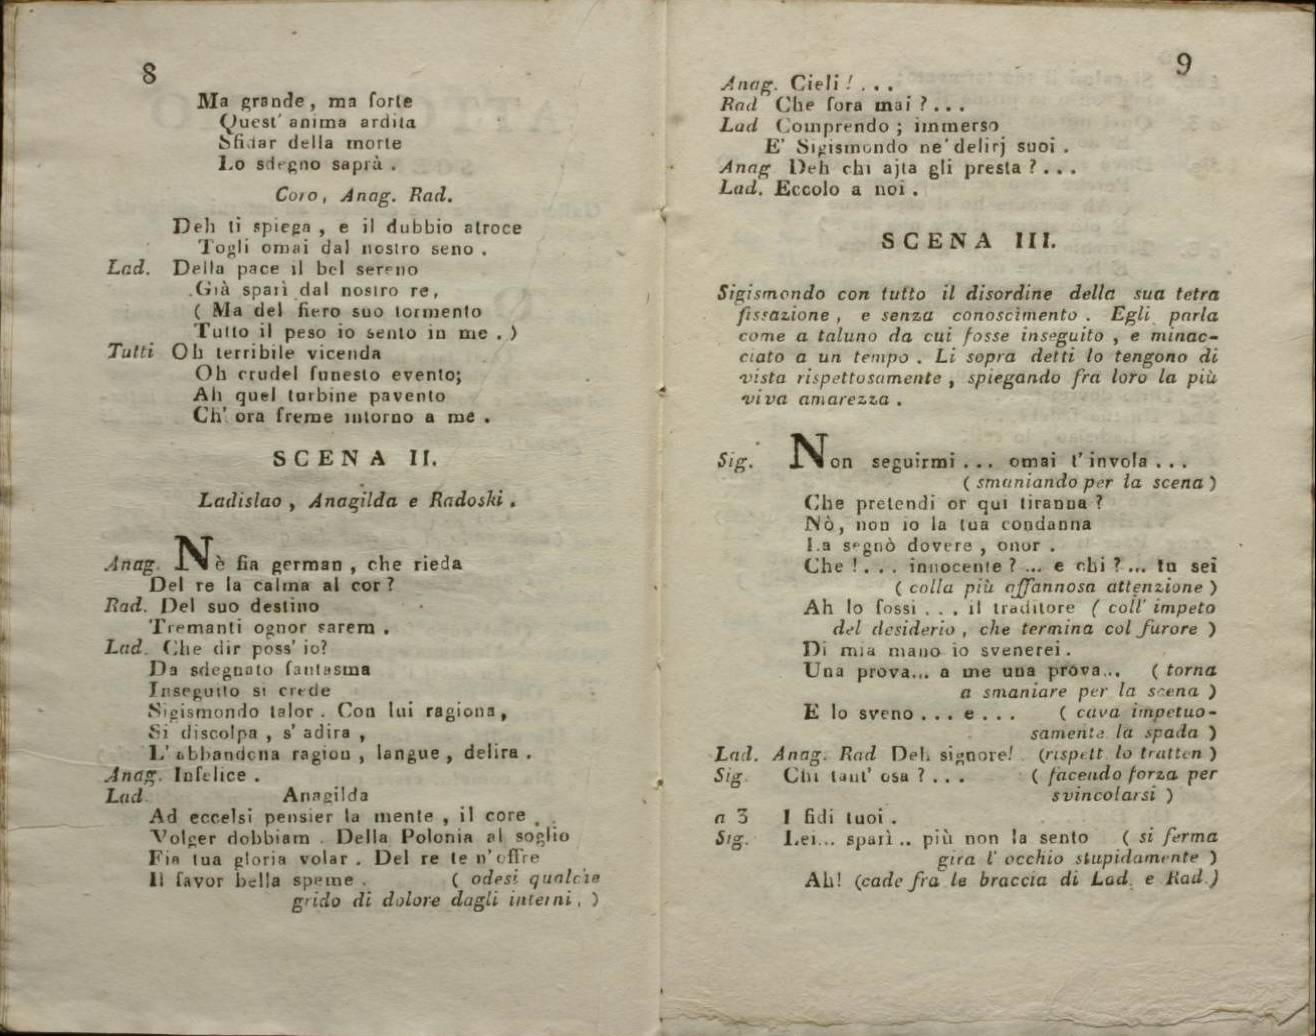 8
Ma grande, ma forte
Quest' anima ardita
Sfidar della morte
Lo sdegno saprà.
Coro, Anag. Rad.
Deh ti spiega, e il dubbio atroce
Togli omai dal nostro seno.
Lad. Della pace il bel sereno
Già sparì dal nostro re,
( Ma del fiero suo tormento
Tutto il peso io sento in me. )
Tutti Oh terribile vicenda
Oh crudel funesto evento;
Ah quel turbine pavento
Ch' ora freme intorno a me.
SCENA II.
Ladislao, Anagilda e Radoski.
Anag. Nè fia german, che rieda
Del re la calma al cor?
Rad. Del suo destino
Tremanti ognor sarem.
Lad. Che dir poss' io?
Da sdegnato fantasma
Inseguito si crede
Sigismondo talor. Con lui ragiona,
Si discolpa, s' adira,
L' abbandona ragion, langue, delira.
Anag. Infelice.
Lad. Anagilda
Ad eccelsi pensier la mente, il core
Volger dobbiam. Della Polonia al soglio
Fia tua gloria volar. Del re te n' offre
Il favor bella speme. ( odesi qualche
grido di dolore dagli interni. )
9
Anag. Cieli!...
Rad Che fora mai?...
Lad Comprendo; immerso
E' Sigismondo ne' delirj suoi.
Anag Deh chi ajta gli presta?...
Lad. Eccolo a noi.
SCENA III.
Sigismondo con tutto il disordine della sua tetra
fissazione, e senza conoscimento. Egli parla
come a taluno da cui fosse inseguito, e minac-
ciato a un tempo. Li sopra detti lo tengono di
vista rispettosamente, spiegando fra loro la più
viva amarezza.
Sig. Non seguirmi... omai t' invola...
( smaniando per la scena )
Che pretendi or qui tiranna?
Nò, non io la tua condanna
La segnò dovere, onor.
Che!... innocente?... e chi?... tu sei
( colla più affannosa attenzione )
Ah lo fossi... il traditore ( coll' impeto
del desiderio, che termina col furore )
Di mia mano io svenerei.
Una prova... a me una prova... ( torna
a smaniare per la scena )
E lo sveno... e... ( cava impetuo-
samente la spada )
Lad. Anag. Rad Deh signore! (rispett. lo tratten )
Sig. Chi tant' osa?... ( facendo forza per
svincolarsi )
a 3 I fidi tuoi.
Sig. Lei... sparì.. più non la sento ( si ferma
gira l' occhio stupidamente )
Ah! (cade fra le braccia di Lad. e Rad.)